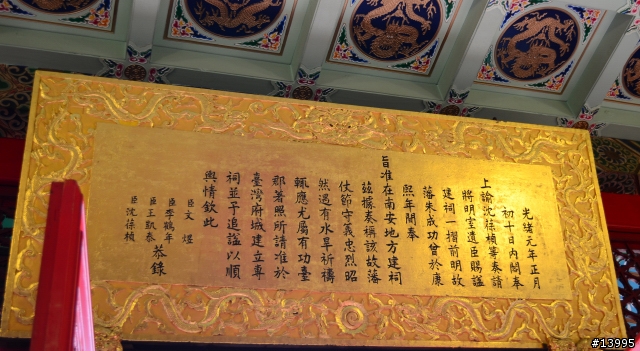 光緒元年正月
初十日內閣奉
上諭沈葆楨等奏請
將明室遺臣賜謚
建祠一摺前明故
藩朱成功曾於康
熙年間奉
旨准在南安地方建祠
茲據奏稱該故藩
仗節守義忠烈昭
然遇有水旱祈禱
輒應尤屬有功臺
郡著照所請准於
臺灣府城建立專
祠並予追謚以順
輿情欽此
臣文煜
臣李鶴年
臣王凱泰
臣沈葆楨
恭錄
#13995